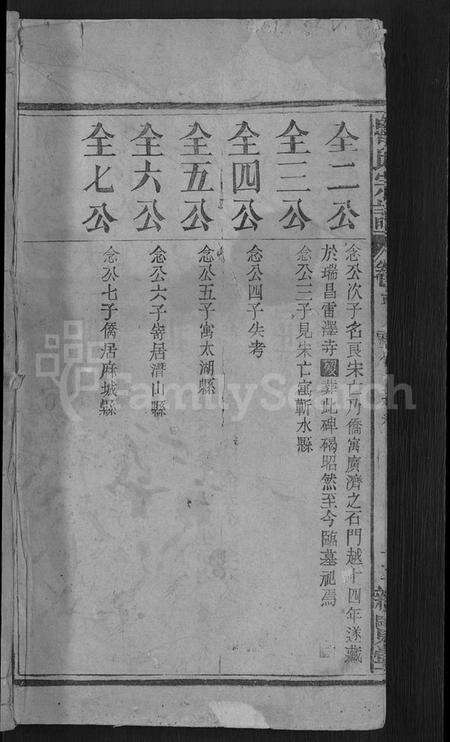 全二公
念公次子名良宋亡乃僑寓廣濟之石門越十四年遂藏
於瑞昌雷澤寺側葬此碑碣昭然至今臨墓祀焉
全三公
念公三子見宋亡寓蘄水縣
全四公
念公四子失考
全五公
念公五子寓太湖縣
全六公
念公六子寄居潛山縣
全七公
念公七子僑居麻城縣
FamilySearch